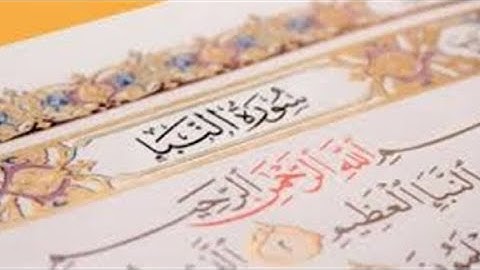 سُورَةُ النَّبَإِ
ـمِ اللَّهِ الرَّحْمَٰنِ الرَّحِيـ
النَّبَإِ الْعَظِيمِ ٢